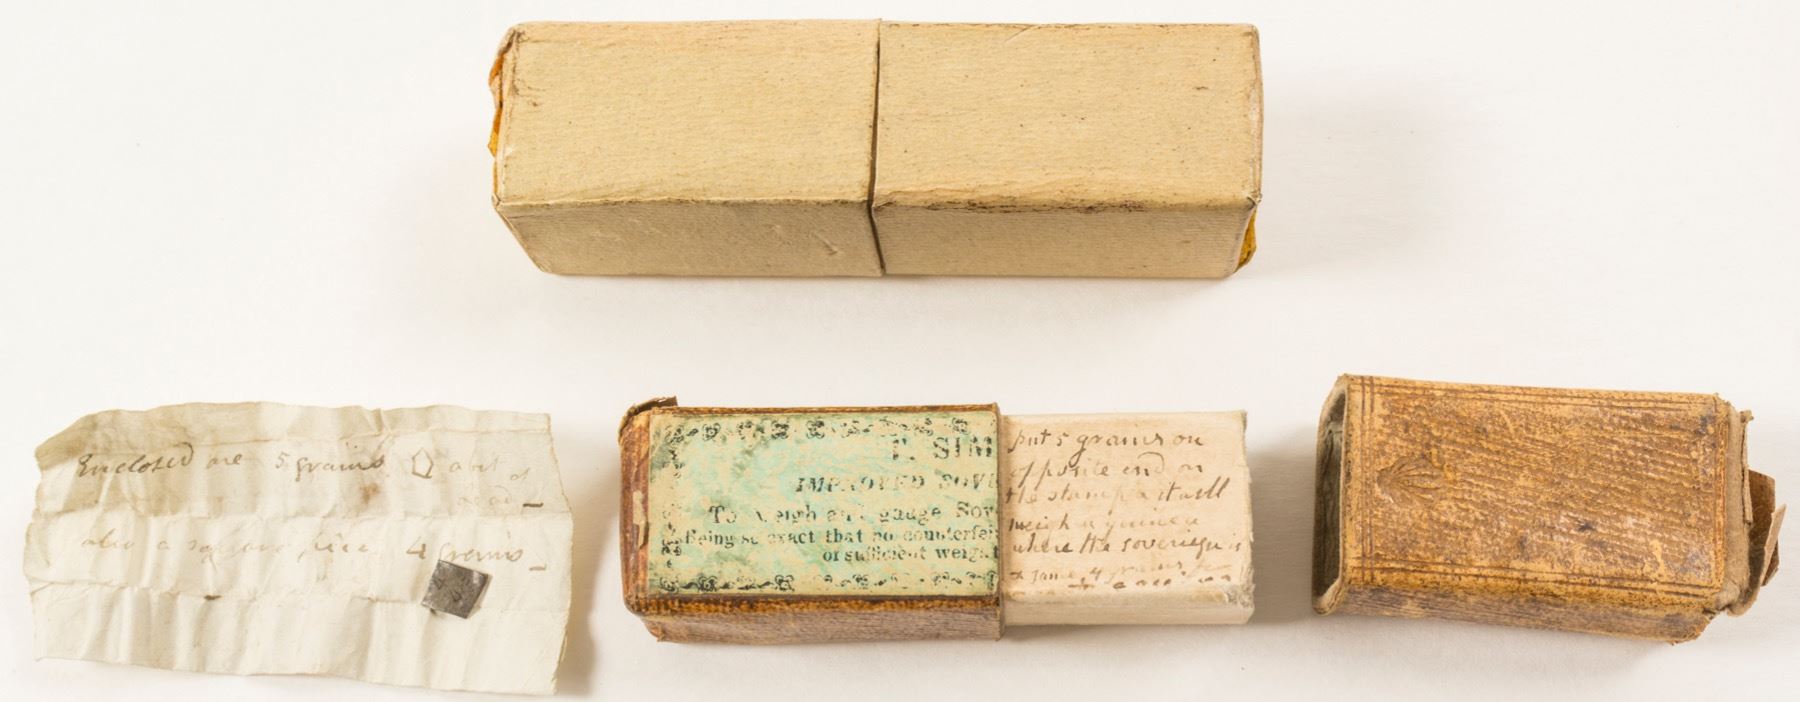 Enclosed are 5 grains a bit of
lead
also a square piece 4 grains
T. SIM
IMPROVED SOVE
To weigh and gauge Sov
Being so exact that no counterfei
or sufficient weigh
put 5 grains on
opposite end on
the stamp & it will
weigh a guinea
where the sovereign is
& same 4 grains